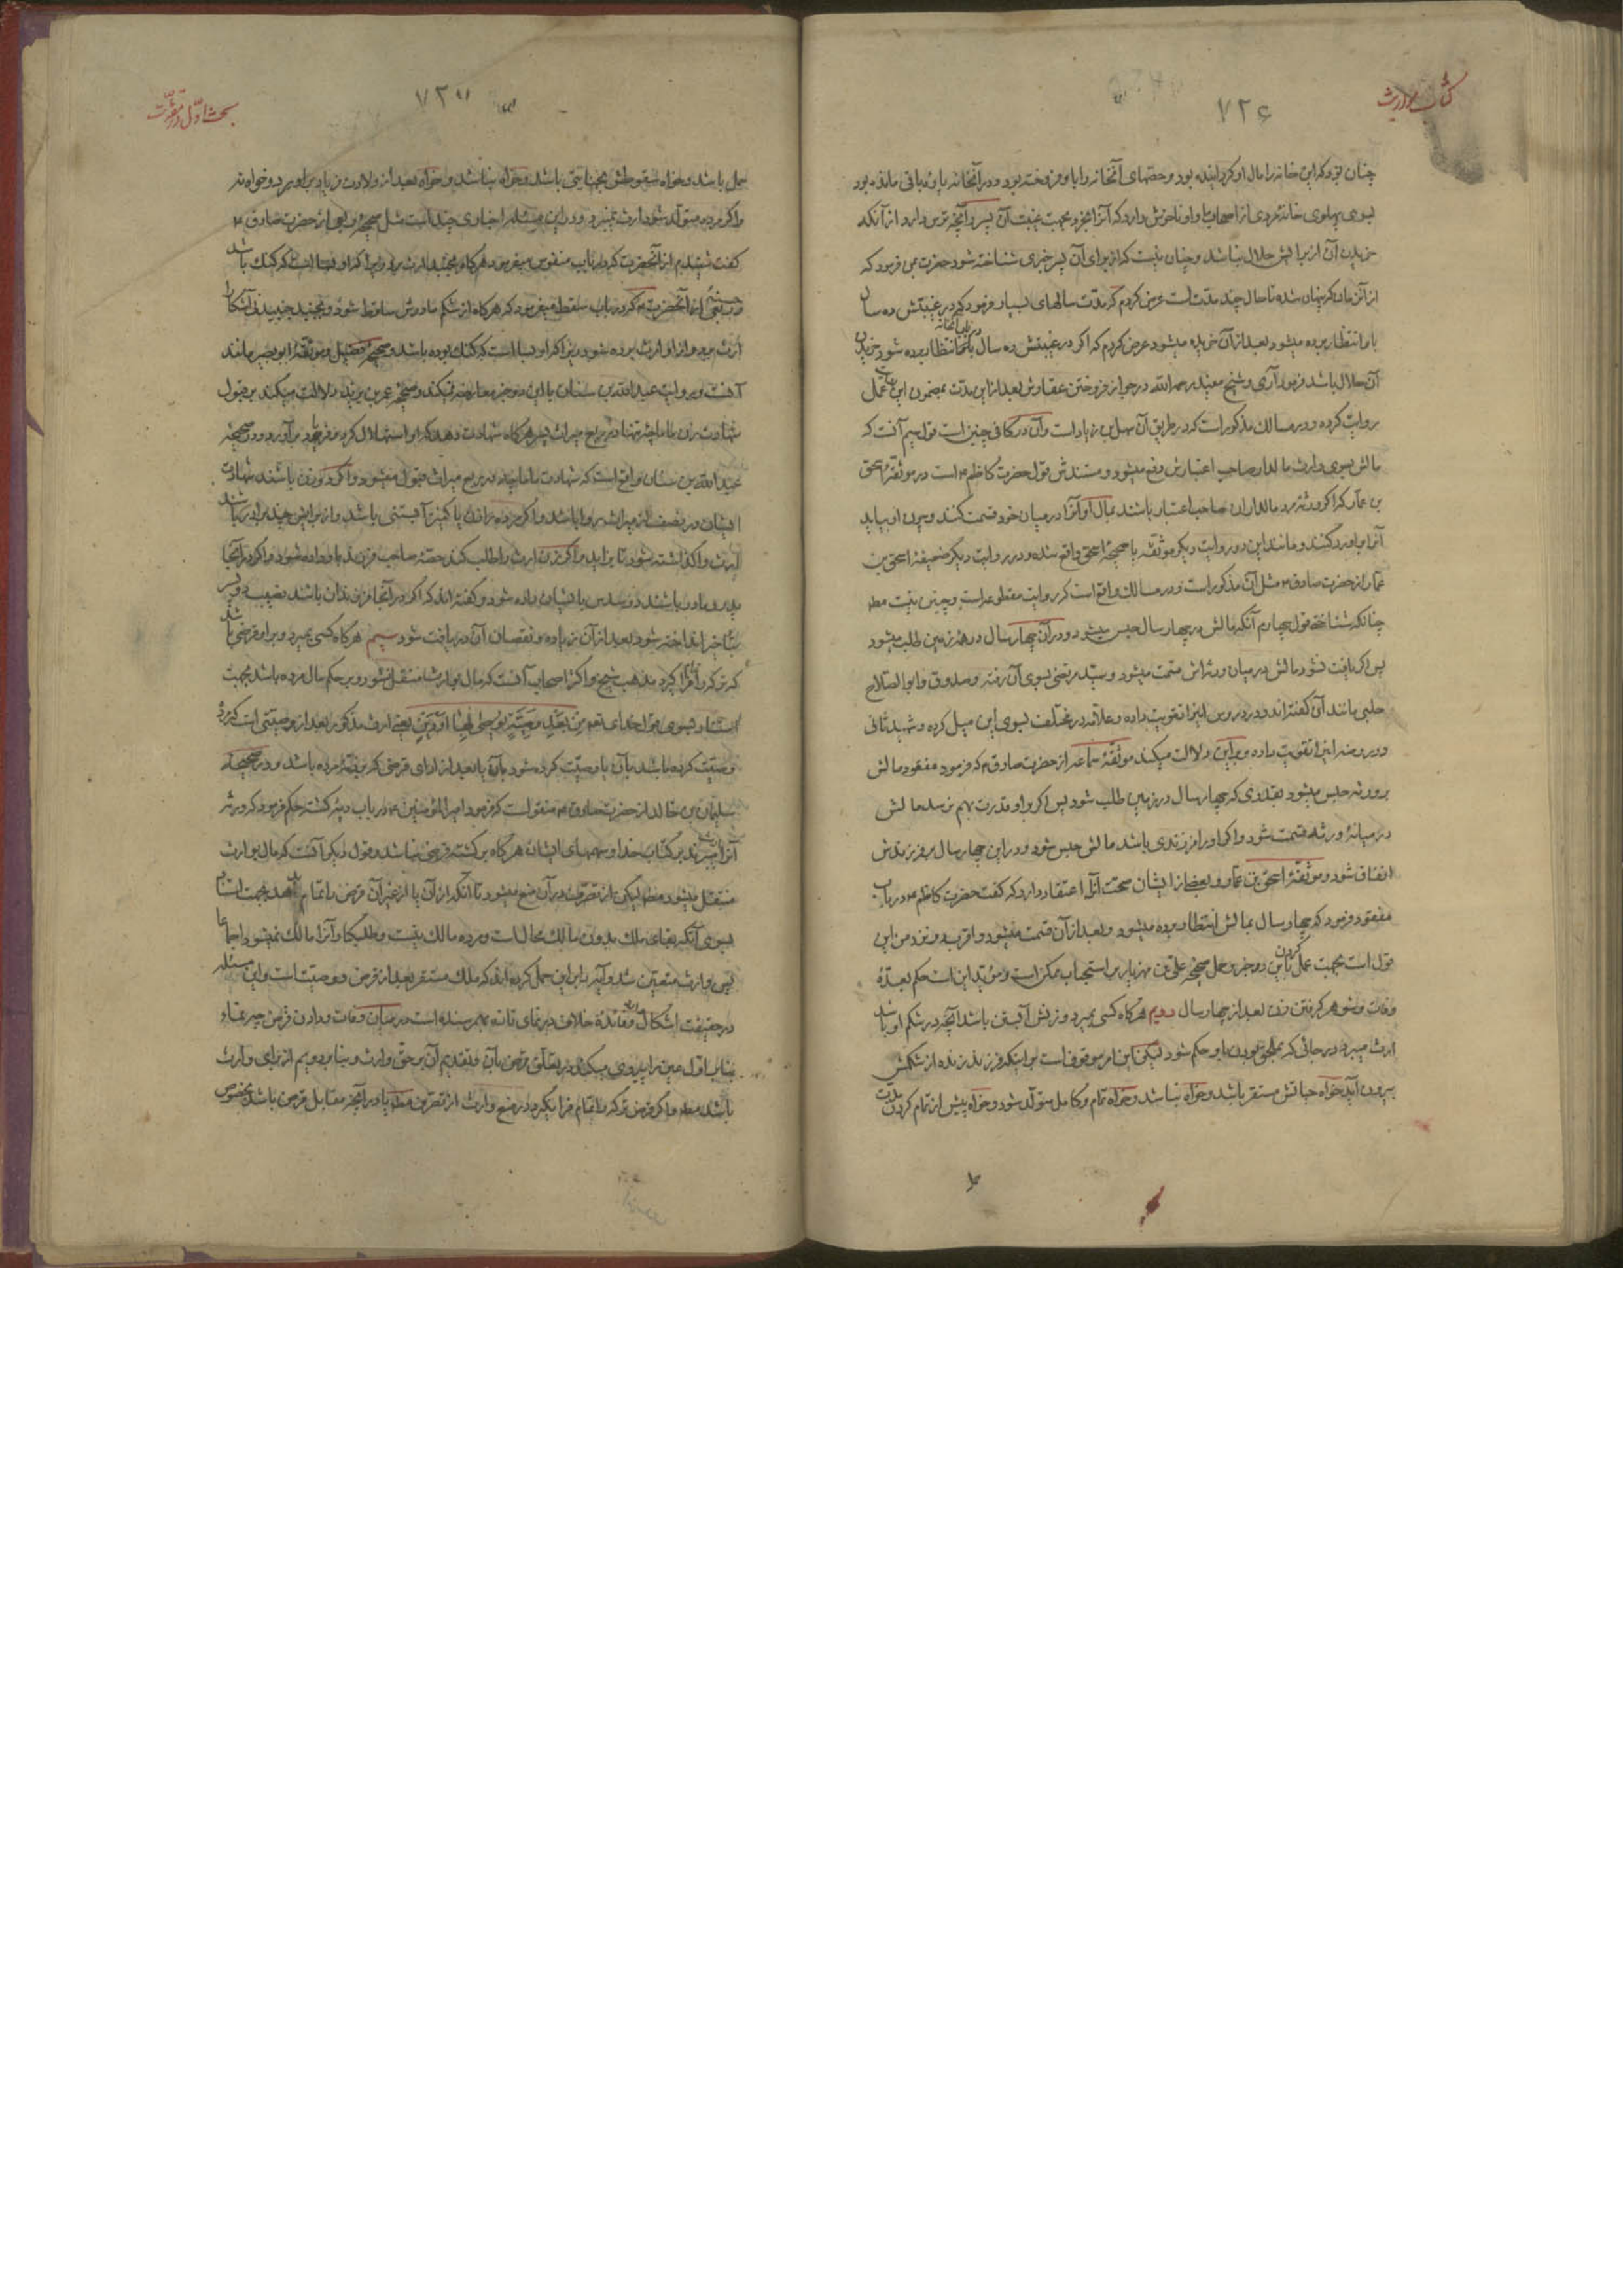 کتاب مواریث
۷۲۶
چنان بود که این خانه را مال او کردانیده بود و حصّتهای آنخانه را باو فروخته بود و در آنخانه پاره باقی مانده بود
بسوی پهلوی خانهٔ مردی از اصحاب ما و او ناخوش دارد که آنرا بخرد بجهت غیبت آن پسر و آنچه ترس دارد از آنکه
خریدن آن از برایش حلال نباشد و چنان نیست که از برای آن پسر خبری شناخته شود حضرت بمن فرمود که
از آن زمان که پنهان شده تا حال چند مدّتست عرض کردم که مدّت سالهای بسیار فرمود که در غیبتش ده سال
باو انتظار برده میشود بعد از آن خریده میشود عرض کردم که اکر در غیبتش ده سال باو انتظار برده شود خریدن
آن حلال باشد فرمود آری و شیخ مفید رحمه الله در جواز فروختن عقارش بعد از این مدّت بمضمون این روایت عمل
روایت کرده و در مسالک مذکور است که در طریق آن سهل بن زیاد است و آن در کافی چنین است قول سیم آنست که
مالش بسوی وارث مالدار صاحب اعتبارش دفع میشود و مستندش قول حضرت کاظم ۴ است در موثقهٔ اسحق
بن عمار که اکر ورثه مرد مالداران صاحب اعتبار باشند بمال او آنرا در میان خود قسمت کنند و چون او بیاید
آنرا باو رد کنند و مانند این در روایت دیکر موثقه یا صحیحهٔ اسحق واقع شده و در روایت دیکر ضعیفهٔ اسحق بن
عمار از حضرت صادق ۴ مثل آن مذکور است و در مسالک واقع است که روایت مقطوعه است و چنین نیست مط
چنانکه شناختی قول چهارم آنکه مالش در چهار سال حبس میشود و در آن چهار سال در همه زمین طلب میشود
پس اکر یافت نشود مالش در میان ورثه اش قسمت میشود و سید مرتضی بسوی آن رفته و صدوق و ابو الصلاح
حلبی مانند آن کفته اند و در دروس اینرا تقویت داده و علامه در مختلف بسوی این میل کرده و شهید ثانی
در روضه اینرا تقویت داده و بر این دلالت میکند موثقهٔ سماعه از حضرت صادق ۴ که فرمود مفقود مالش
بر ورثه حبس میشود بقدری که چهار سال در زمین طلب شود پس اکر بر او قدرت بهم نرسد مالش
در میانهٔ ورثه قسمت شود و اکر او را فرزندی باشد مالش حبس شود و در این چهار سال بر فرزندش
انفاق شود و موثقهٔ اسحق بن عمار و بعضی از ایشان صحت آنرا اعتقاد دارد که کفت حضرت کاظم ۴ در باب
مفقود فرمود که چهار سال بمالش انتظار برده میشود و بعد از آن قسمت میشود و اقرب در نزد من این
قول است بجهت عمل کردن باین دو خبر و حمل صحیحهٔ علی بن مهزیار بر استحباب ممکن است و مؤید این است حکم بعدّهٔ
وفات و شوهر کرفتن زن بعد از چهار سال دویم هرکاه کسی بمیرد و زنش آبستن باشد آنچه در شکم او باشد
ارث میبرد در جائی که بملحق بودن باو حکم شود لیکن این امر موقوف است بر اینکه فرزند زنده از شکمش
بیرون آید خواه حیاتش مستقر باشد و خواه نباشد و خواه تمام و کامل متولد شود و خواه پیش از تمام کردن مدت
بحث اوّل در
۷۲۷
حمل باشد و خواه سقوطش بجنایتی باشد و خواه نباشد و خواه بعد از ولادت فریاد برآورد و خواه نه
و اکر مرده متولد شود ارث نمیبرد و در این مسئله اخباری چند است مثل صحیحهٔ ربعی از حضرت صادق ۴
کفت شنیدم از آنحضرت که در باب منفوس میفرمود هرکاه بجنبد ارث برد زیرا که او بسا است که کنک باشد
و حسنهٔ ربعی از آنحضرت ۴ که در باب سقط میفرمود که هرکاه از شکم مادرش ساقط شود و بجنبد جنبیدنی آشکارا
ارث برد و از او ارث برده شود زیرا که او بسا است که کنک بوده باشد و صحیحهٔ فضیل و موثقهٔ ابو بصیر مانند
آنست و روایت عبد الله بن سنان با این دو خبر معارضه نمیکند و صحیحهٔ عمر بن یزید دلالت میکند بر قبول
شهادت زن ماماچه تنها در ربع میراث پسر هرکاه شهادت دهد که او استهلال کرد و فریاد بر آورد و در صحیحهٔ
عبد الله بن سنان واقع است که شهادت ماماچه در ربع میراث قبول میشود و اکر دو زن باشند شهادت
ایشان در نصف از میراث روا باشد و اکر مرده را زن یا کنیز آبستنی باشد و از برایش چند برادر باشند
ارث واکذاشته شود تا بزاید و اکر زن ارث را طلب کند حصّهٔ صاحب فرزند باو داده شود و اکر در آنجا
پدر و مادر باشند دو سدس بایشان داده شود و کفته اند که اکر در آنجا فرزندان باشند نصیب دو پسر
بتأخیر انداخته شود بعد از آن زیاده و نقصان آن دریافت شود سیم هرکاه کسی بمیرد و بر او قرضی باشد
که ترکه را فرا کیرد مذهب شیخ و اکثر اصحاب آنست که مال بوارث منتقل نشود و بر حکم مال مرده باشد بجهت
استناد بسوی قول خدای تعالی مِنْ بَعْدِ وَصِیَّةٍ یُوصِی بِهَا أَوْ دَیْنٍ یعنی ارث مذکور بعد از وصیتی است که مرده
وصیّت کرده باشد بآن یا وصیّت کرده شود بآن یا بعد از ادای قرضی که بر ذمّهٔ مرده باشد و در صحیحهٔ
سلیمان بن خالد از حضرت صادق ۴ منقول است که فرمود امیر المؤمنین ۴ در باب دیهٔ کشته حکم فرمود که ورثه
آنرا ارث میبرند بر کتاب خدا و سهمهای ایشان هرکاه بر کشته قرضی نباشد و قول دیکر آنست که مال بوارث
منتقل میشود مط لیکن از تصرف در آن منع میشود تا آنکه از آن یا از غیر آن قرض را تمام بدهد بجهت استناد
بسوی آنکه بقای ملک بدون مالک محال است و مرده مالک نیست و طلبکار آنرا مالک نمیشود اجماعا
پس وارث متعین شد و آیه را بر این حمل کرده اند که ملک مستقر بعد از قرض و وصیت است و این مسئله
در حقیقت اشکال دارد و فائدهٔ خلاف در نمای تازه بهم رسنده است در میان وفات و دادن قرض چه بنا بر
بنابر اوّل عین را پیروی میکند در تعلّق قرض بآن و تقدیم آن بر حقّ وارث و بنابر دویم از برای وارث
باشد مط و اکر قرض ترکه را تمام فرا نکیرد در منع وارث از تصرف مط یا در آنچه مقابل قرض باشد بخصوص